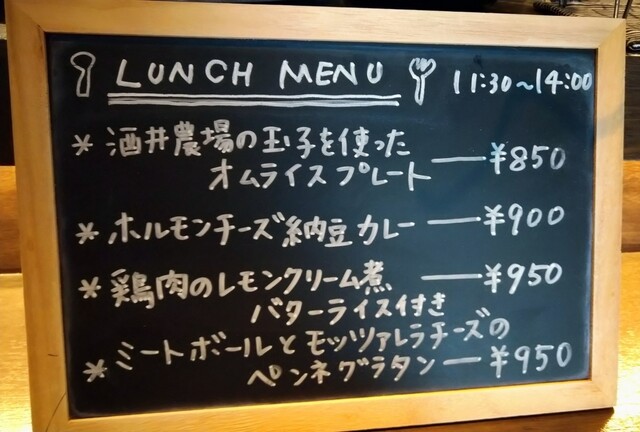 LUNCH MENU 11:30~14:00
* 酒井農場の玉子を使った
オムライスプレート — ¥850
* ホルモンチーズ納豆カレー — ¥900
* 鶏肉のレモンクリーム煮 — ¥950
バターライス付き
* ミートボールとモッツァレラチーズの
ペンネグラタン — ¥950